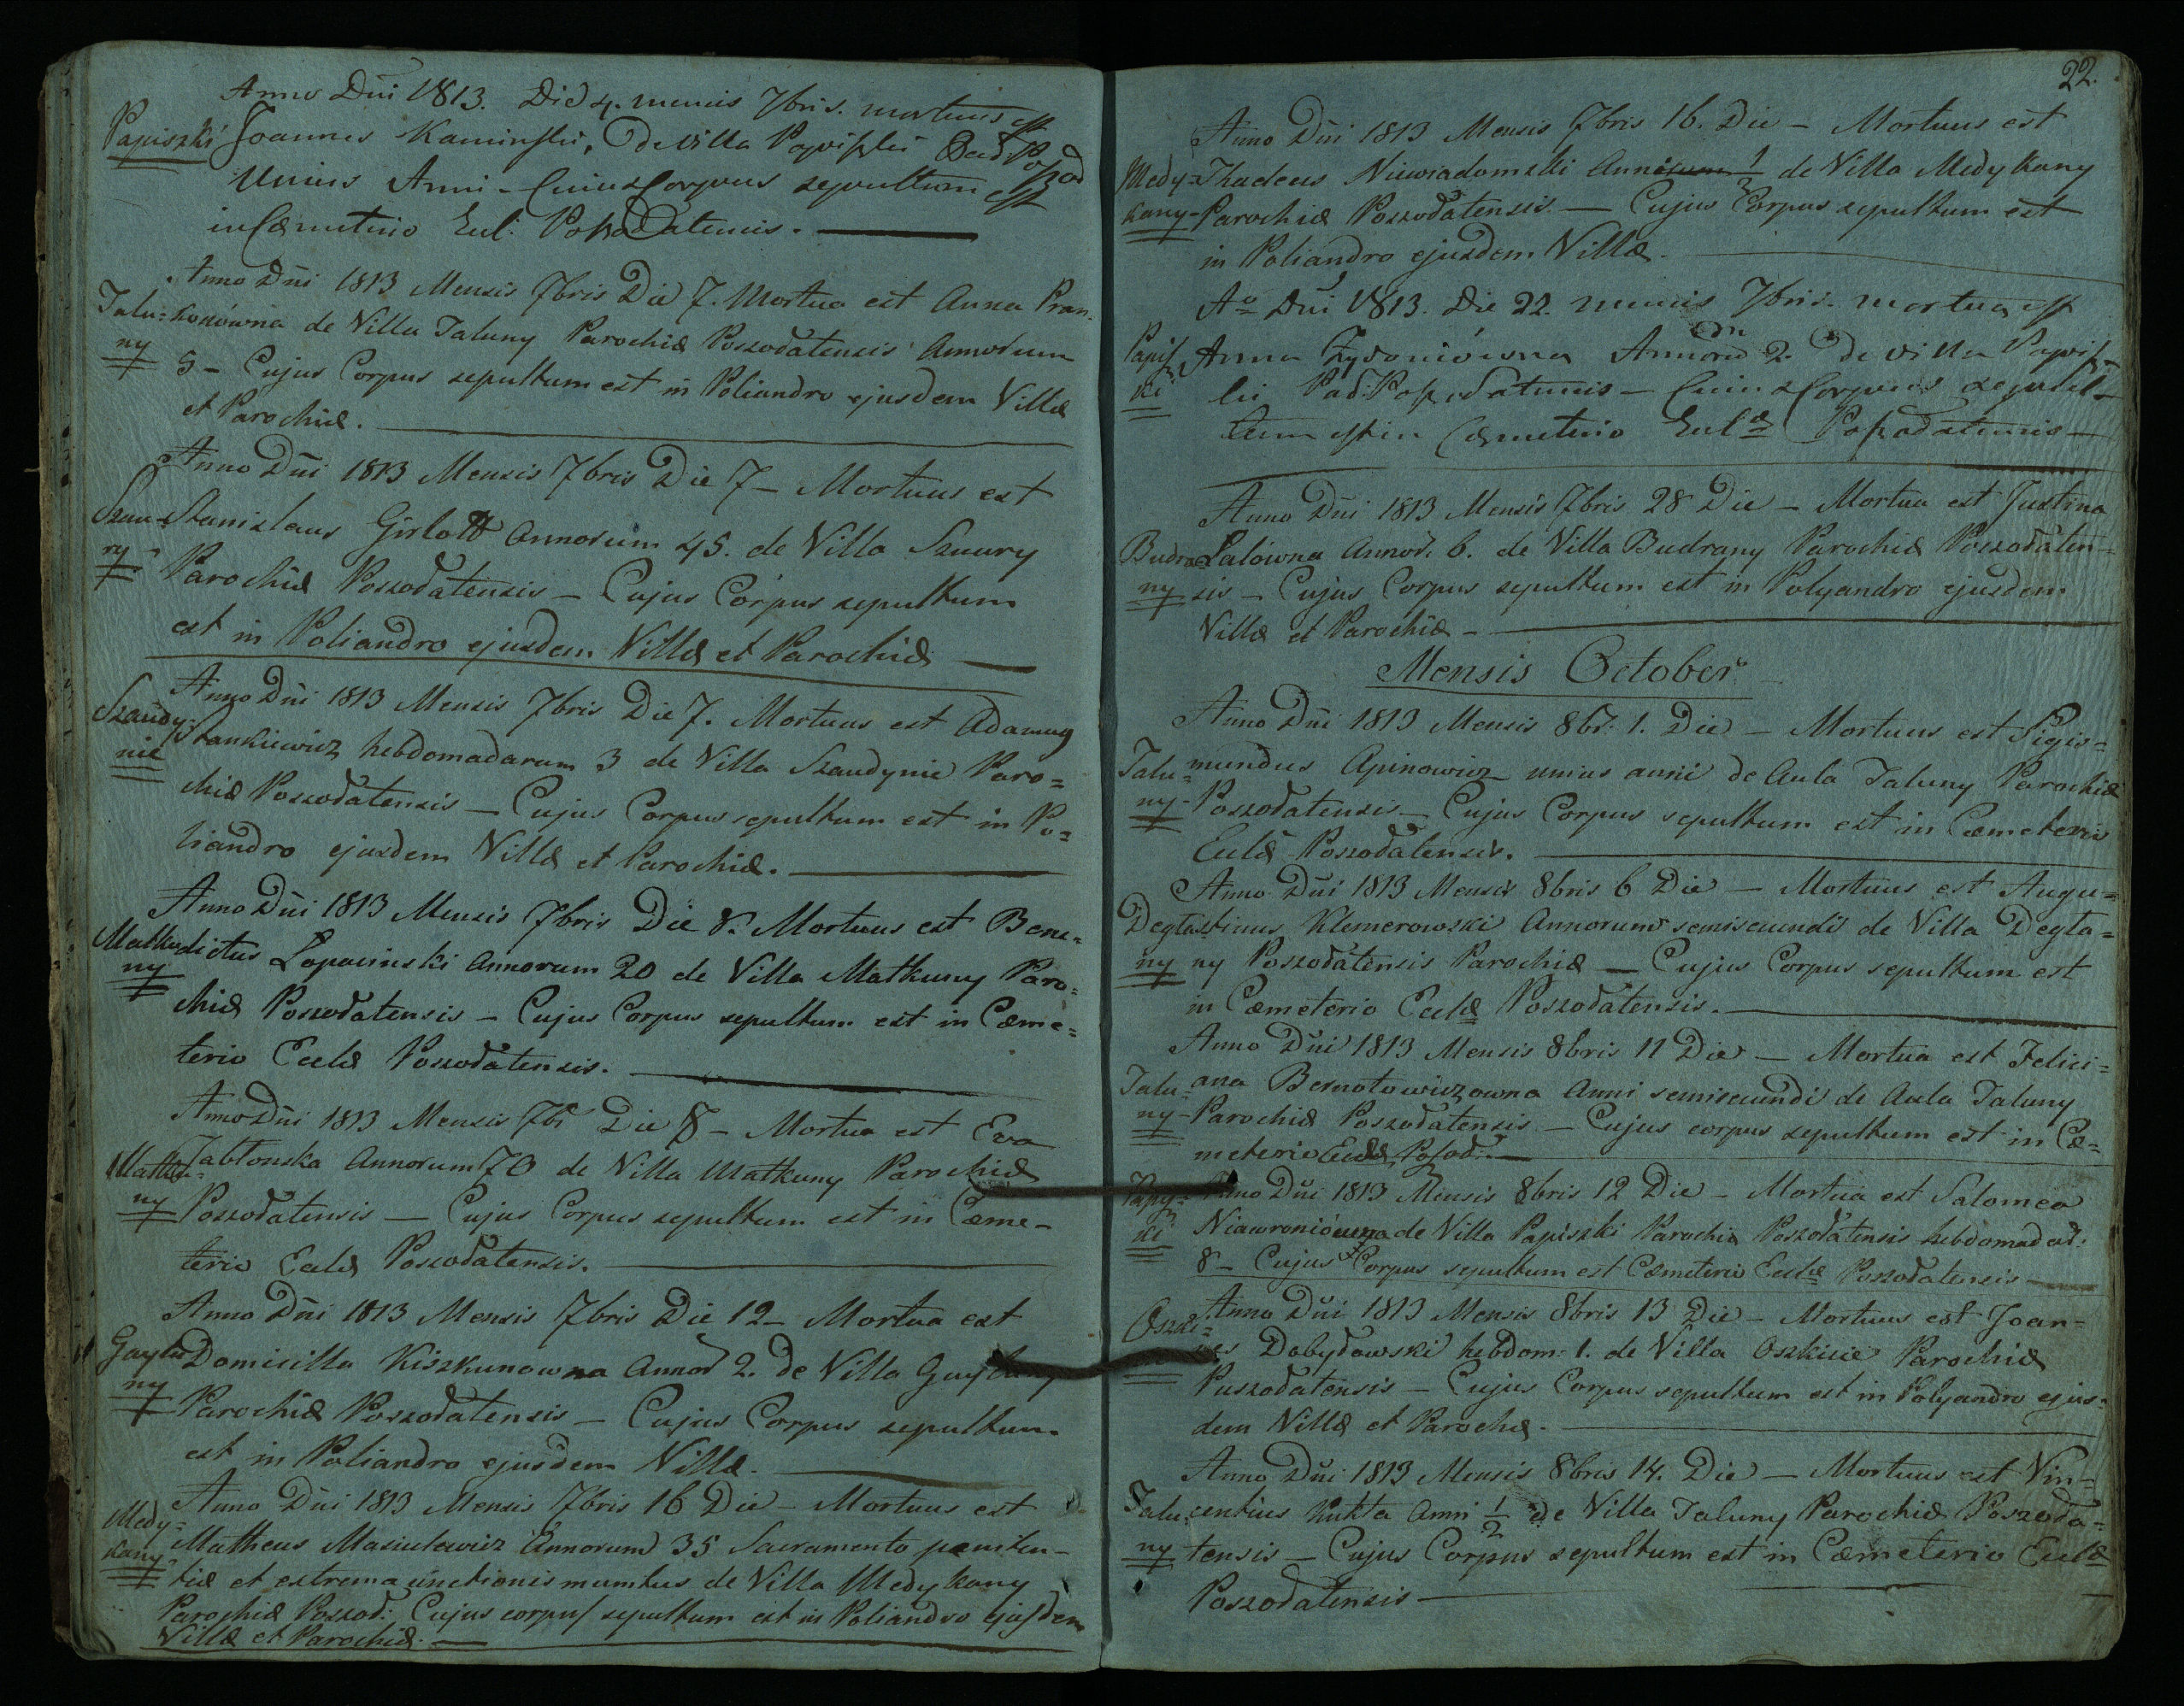 Anno Dñi 1813. Die 4. mensis 7bris. mortuus est
Papiszki Joannes Kaminski, de villa Papiszki Par. Poszod
Unius Anni – Cuius Corpus sepultum est
in Cæmeterio Eccl. Poszodatensis.
Anno Dñi 1813 Mensis 7bris Die 7. Mortua est Anna Pran-
Talu= kokówna de Villa Taluny Parochiæ Poszodatensis Annorum
ny 5 – Cujus Corpus sepultum est in Poliandro ejusdem Villæ
et Parochiæ.
Anno Dñi 1813 Mensis 7bris Die 7 – Mortuus est
Szau= Stanislaus Girlott Annorum 45. de Villa Szaury
ry Parochiæ Poszodatensis – Cujus Corpus sepultum
est in Poliandro ejusdem Villæ et Parochiæ
Anno Dñi 1813 Mensis 7bris Die 7. Mortuus est Adamus
Szaudy= Stankiewicz hebdomadarum 3 de Villa Szaudynie Paro=
nie chiæ Poszodatensis – Cujus Corpus sepultum est in Po=
liandro ejusdem Villæ et Parochiæ.
Anno Dñi 1813 Mensis 7bris Die 8. Mortuus est Bene=
Matku dictus Łopacinski Annorum 20 de Villa Matkuny Paro=
ny chiæ Poszodatensis – Cujus Corpus sepultum est in Cæme=
terio Eccl̃æ Poszodatensis.
Anno Dñi 1813 Mensis 7br Die 8 – Mortua est Eva
Matku= Jabłonska Annorum 70 de Villa Matkuny Parochiæ
ny Poszodatensis – Cujus Corpus sepultum est in Cæme-
terio Eccl̃æ Poszodatensis.
Anno Dñi 1813 Mensis 7bris Die 12 – Mortua est
Gaylu Domicilla Kiszkunowna Annor 2. de Villa Gayluny
ny Parochiæ Poszodatensis – Cujus Corpus sepultum
est in Poliandro ejusdem Villæ.
Anno Dñi 1813 Mensis 7bris 16 Die – Mortuus est
Medy= Matheus Masiulewicz Annorum 35 Sacramento pæniten-
kany tiæ et extrema unctionis munitus de Villa Medykany
Parochiæ Poszod: Cujus corpus sepultum est in Poliandro ejusdem
Villæ et Parochiæ.
22.
Anno Dñi 1813 Mensis 7bris 16. Die – Mortuus est
Medy= Thadeus Niewiadomski Anni 1/2 de Villa Medykany
kany Parochiæ Poszodatensis – Cujus Corpus sepultum est
in Poliandro ejusdem Villæ.
Aº Dñi 1813. Die 22. mensis 7bris. mortua est
Papisz Anna Annorũ 2. de villa Papisz
ki ki Par. Poszodatensis – Cuius Corpus sepul-
tum est in Cæmeterio Eccl̃æ Poszodatensis –
Anno Dñi 1813 Mensis 7bris 28 Die – Mortua est Justina
Budra= Lalówna Annor. 6. de Villa Budrany Parochiæ Poszodaten-
ny sis – Cujus Corpus sepultum est in Polyandro ejusdem
Villæ et Parochiæ –
Mensis October
Anno Dñi 1813 Mensis 8br: 1. Die – Mortuus est Sigis=
Talu= mundus Apinowicz unius anni de Aula Taluny Parochiæ
ny Poszodatensis – Cujus Corpus sepultum est in Cæmeterio
Eccl̃æ Poszodatensis.
Anno Dñi 1813 Mensis 8bris 6 Die – Mortuus est Augu=
Degla stinus Klemerowski Annorum semisecundi de Villa Degla=
ny ny Poszodatensis Parochiæ – Cujus Corpus sepultum est
in Cæmeterio Eccl̃æ Poszodatensis.
Anno Dñi 1813 Mensis 8bris 11 Die – Mortua est Felici=
Talu= ana Bernotowiczowna Anni semisecundi de Aula Taluny
ny Parochiæ Poszodatensis – Cujus corpus sepultum est in Cæ=
meterio Eccl̃æ Poszod:
Papisz= Anno Dñi 1813 Mensis 8bris 12 Die – Mortua est Salomea
ki Niawroniówna de Villa Papiszki Parochiæ Poszodatensis hebdomadar:
8 – Cujus Corpus sepultum est Cæmeterio Eccl̃æ Poszodatensis
Anno Dñi 1813 Mensis 8bris 13 Die – Mortuus est Joan=
Oszki= nes Dobydowski hebdom: 1. de Villa Oszkicie Parochiæ
Puszodatensis – Cujus Corpus sepultum est in Polyandro ejus=
dem Villæ et Parochæ.
Anno Dñi 1813 Mensis 8bris 14. Die – Mortuus est Vin=
Talu centius Kukta Anni 1/2 de Villa Taluny Parochiæ Poszoda=
ny tensis – Cujus Corpus sepultum est in Cæmeterio Eccl̃æ
Poszodatensis